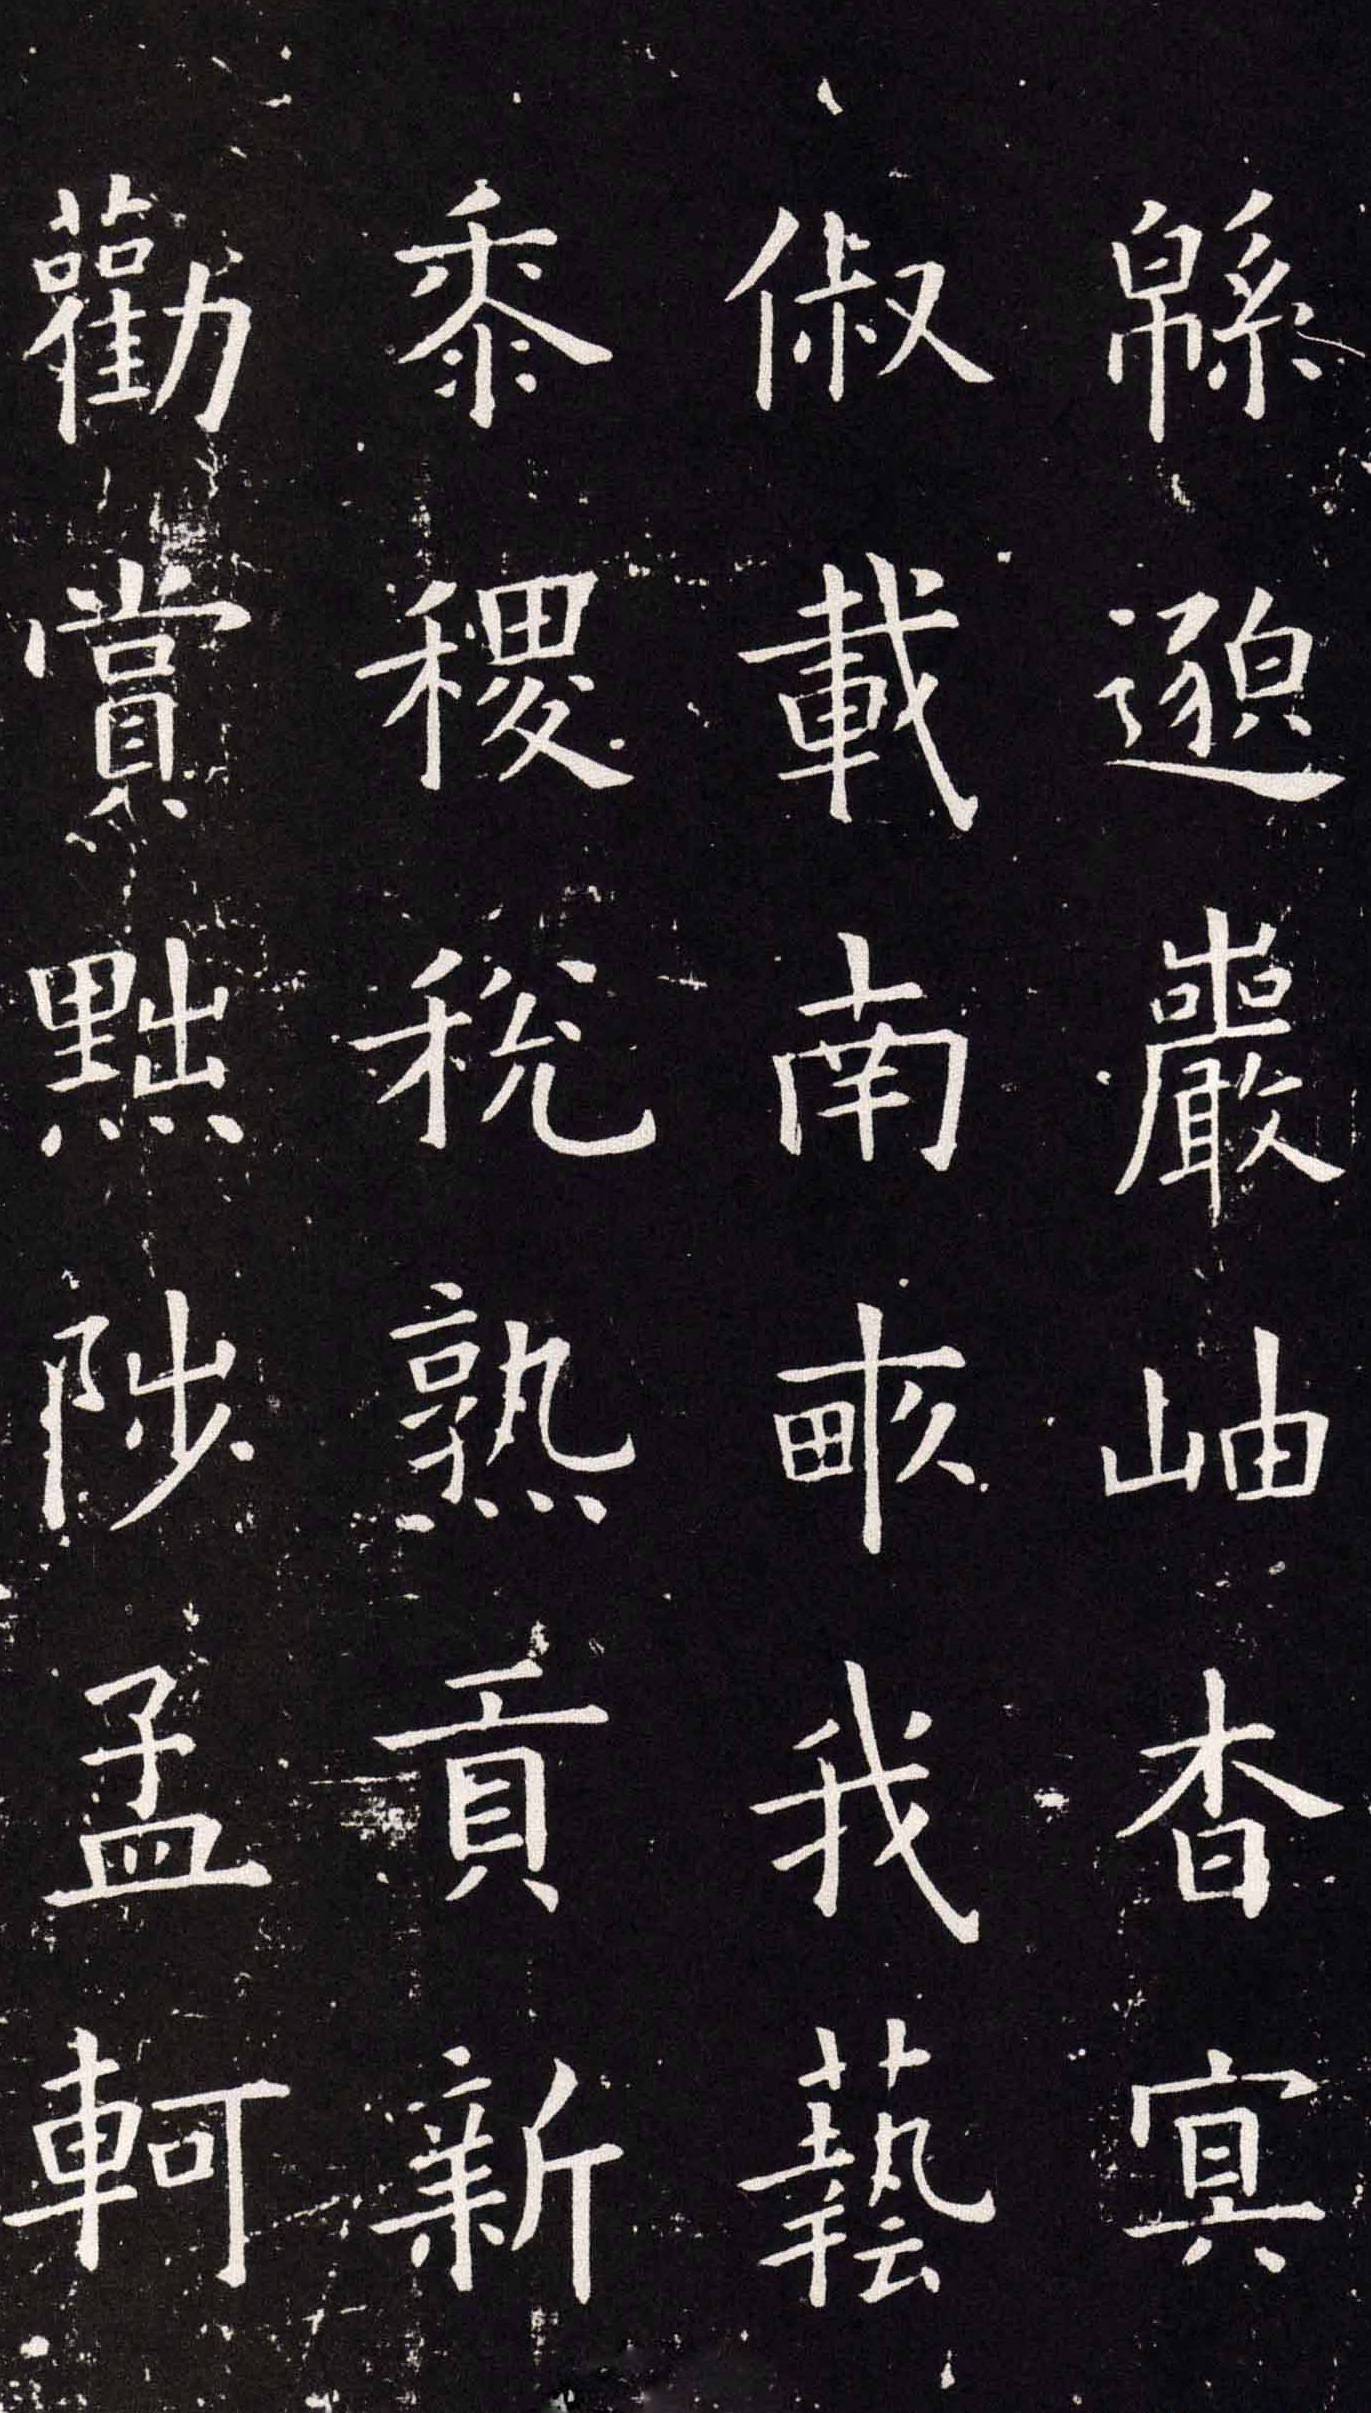 緜邈巖岫杳冥
俶載南畝我藝
黍稷稅熟貢新
勸賞黜陟孟軻